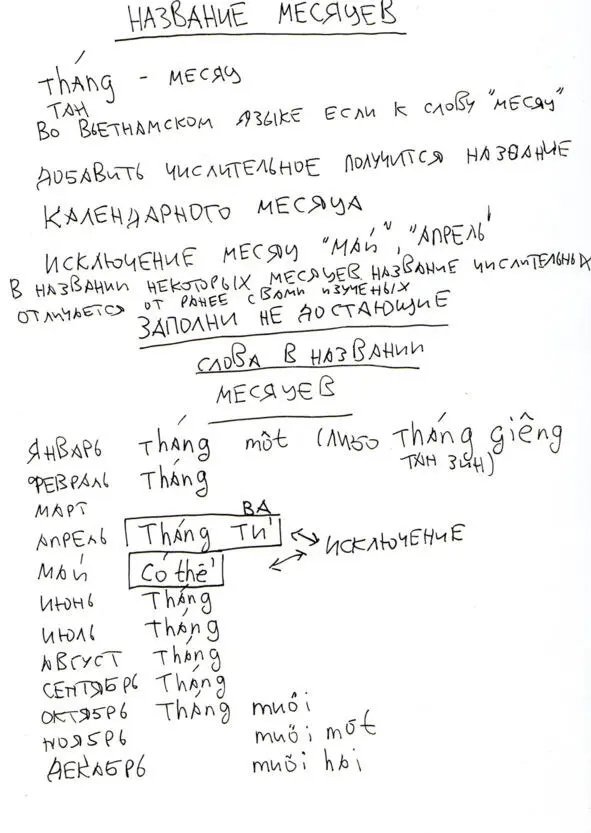 НАЗВАНИЕ МЕСЯЦЕВ
Tháng - МЕСЯЦ
ТАН
ВО ВЬЕТНАМСКОМ ЯЗЫКЕ ЕСЛИ К СЛОВУ "МЕСЯЦ"
ДОБАВИТЬ ЧИСЛИТЕЛЬНОЕ ПОЛУЧИТСЯ НАЗВАНИЕ
КАЛЕНДАРНОГО МЕСЯЦА
ИСКЛЮЧЕНИЕ МЕСЯЦ "МАЙ", "АПРЕЛЬ"
В НАЗВАНИИ НЕКОТОРЫХ МЕСЯЦЕВ НАЗВАНИЕ ЧИСЛИТЕЛЬНЫХ
ОТЛИЧАЕТСЯ ОТ РАНЕЕ С ВАМИ ИЗУЧЕНЫХ
ЗАПОЛНИ НЕ ДОСТАЮЩИЕ
СЛОВА В НАЗВАНИИ
МЕСЯЦЕВ
ЯНВАРЬ Tháng một (ЛИБО Tháng giêng
ТАН ЗИН)
ФЕВРАЛЬ Tháng
МАРТ ВА
АПРЕЛЬ Tháng Tư ИСКЛЮЧЕНИЕ
МАЙ Có thể
ИЮНЬ Tháng
ИЮЛЬ Tháng
АВГУСТ Tháng
СЕНТЯБРЬ Tháng
ОКТЯБРЬ Tháng muôi
НОЯБРЬ muôi môt
ДЕКАБРЬ muôi hai